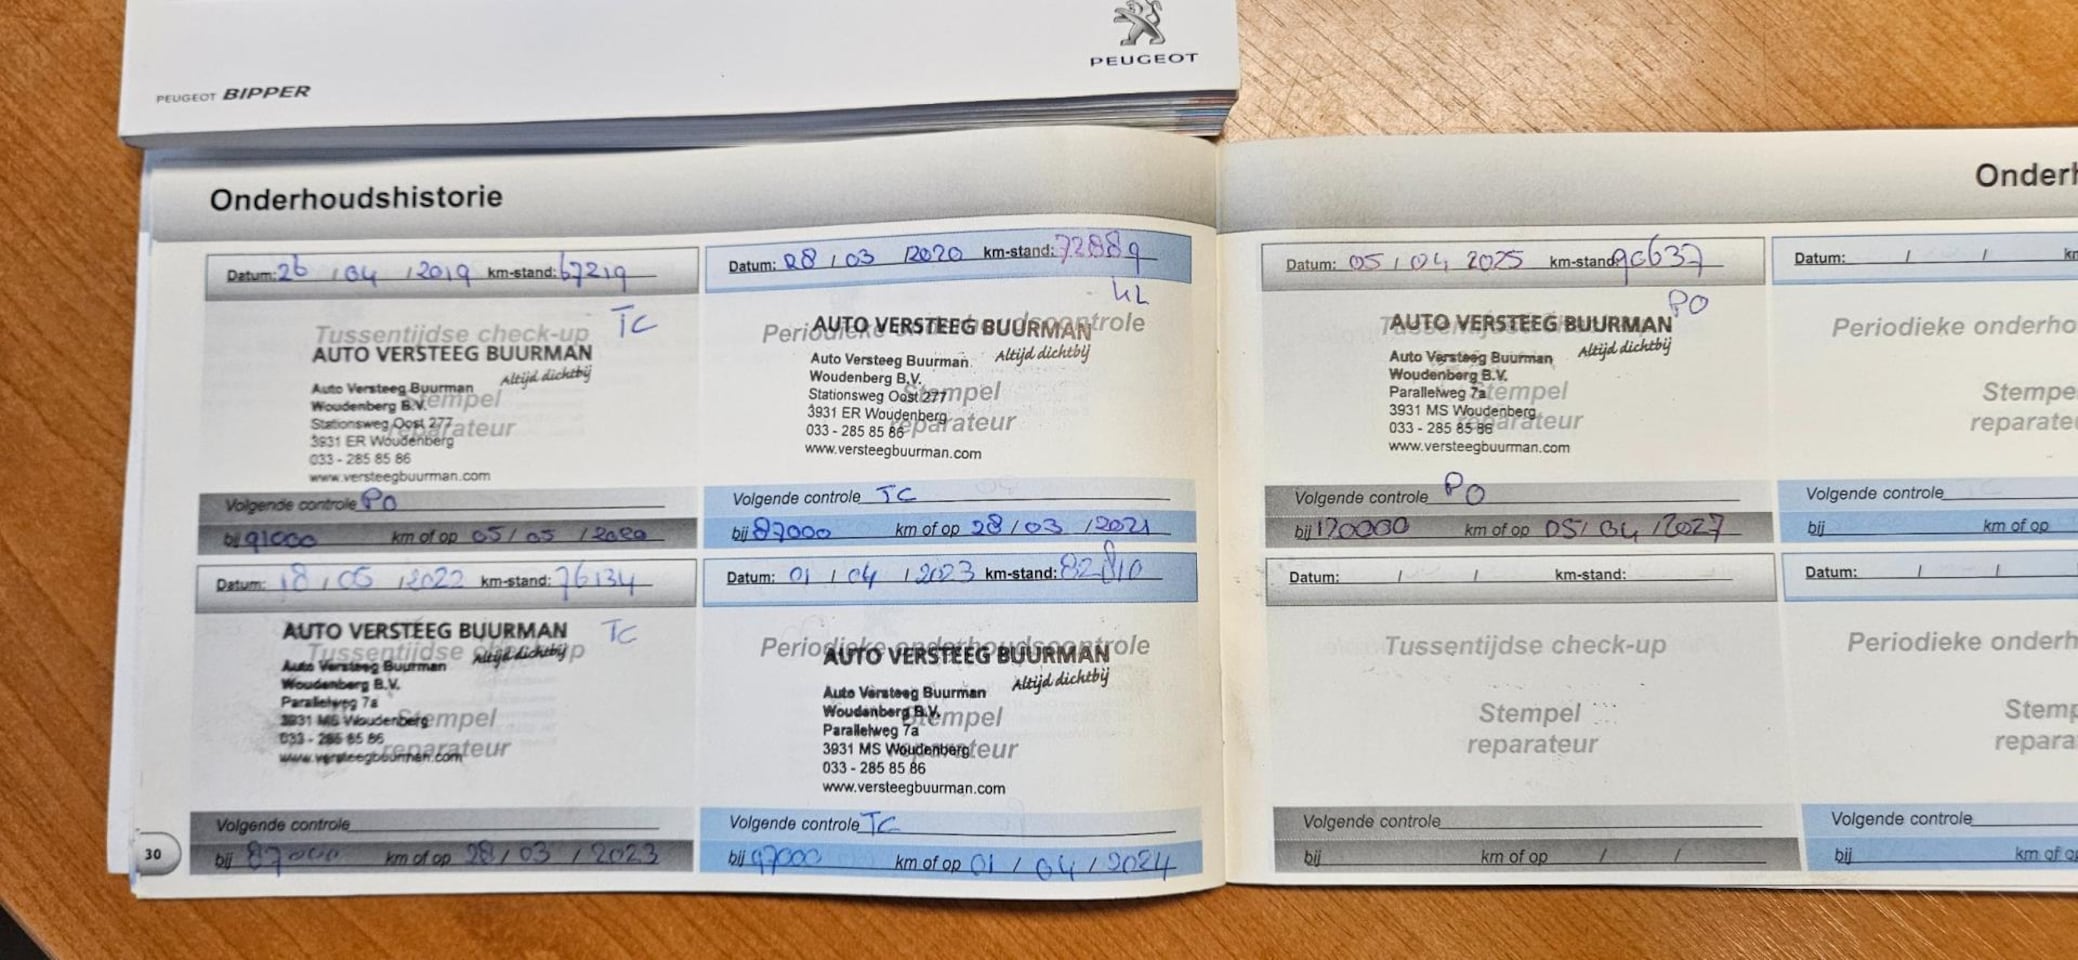 PEUGEOT
PEUGEOT BIPPER
Onderhoudshistorie
Datum: 26 / 04 / 2019 km-stand: 67219
Tussentijdse check-up TC
AUTO VERSTEEG BUURMAN
Altijd dichtbij
Auto Versteeg Buurman
Woudenberg B.V.
Stempel
Stationsweg Oost 277
reparateur
3931 ER Woudenberg
033 - 285 85 86
www.versteegbuurman.com
Volgende controle PO
bij 91000 km of op 05 / 05 / 2020
Datum: 28 / 03 / 2020 km-stand: 72889
Periodieke onderhoudscontrole
AUTO VERSTEEG BUURMAN
Altijd dichtbij
Auto Versteeg Buurman
Woudenberg B.V.
Stempel
Stationsweg Oost 277
3931 ER Woudenberg
reparateur
033 - 285 85 86
www.versteegbuurman.com
Volgende controle TC
bij 87000 km of op 28 / 03 / 2021
Datum: 18 / 05 / 2022 km-stand: 76134
AUTO VERSTEEG BUURMAN TC
Tussentijdse check-up
Altijd dichtbij
Auto Versteeg Buurman
Woudenberg B.V.
Parallelweg 7a
3931 MS Woudenberg
Stempel
033 - 285 85 86
reparateur
www.versteegbuurman.com
Volgende controle
bij 87000 km of op 28 / 03 / 2023
Datum: 01 / 04 / 2023 km-stand: 82810
Periodieke onderhoudscontrole
AUTO VERSTEEG BUURMAN
Altijd dichtbij
Auto Versteeg Buurman
Woudenberg B.V.
Stempel
Parallelweg 7a
3931 MS Woudenberg
reparateur
033 - 285 85 86
www.versteegbuurman.com
Volgende controle TC
bij 97000 km of op 01 / 04 / 2024
30
Onderh
Datum: 05 / 04 2025 km-stand: 90637
PO
Tussentijdse check-up
AUTO VERSTEEG BUURMAN
Altijd dichtbij
Auto Versteeg Buurman
Woudenberg B.V.
Parallelweg 7a
Stempel
3931 MS Woudenberg
reparateur
033 - 285 85 86
www.versteegbuurman.com
Volgende controle PO
bij 120000 km of op 05 / 04 / 2027
Datum: / / km
Periodieke onderho
Stempe
reparate
Volgende controle
bij km of op
Datum: / / km-stand:
Tussentijdse check-up
Stempel
reparateur
Volgende controle
bij km of op / /
Datum: / /
Periodieke onderh
Stemp
repara
Volgende controle
bij km of op